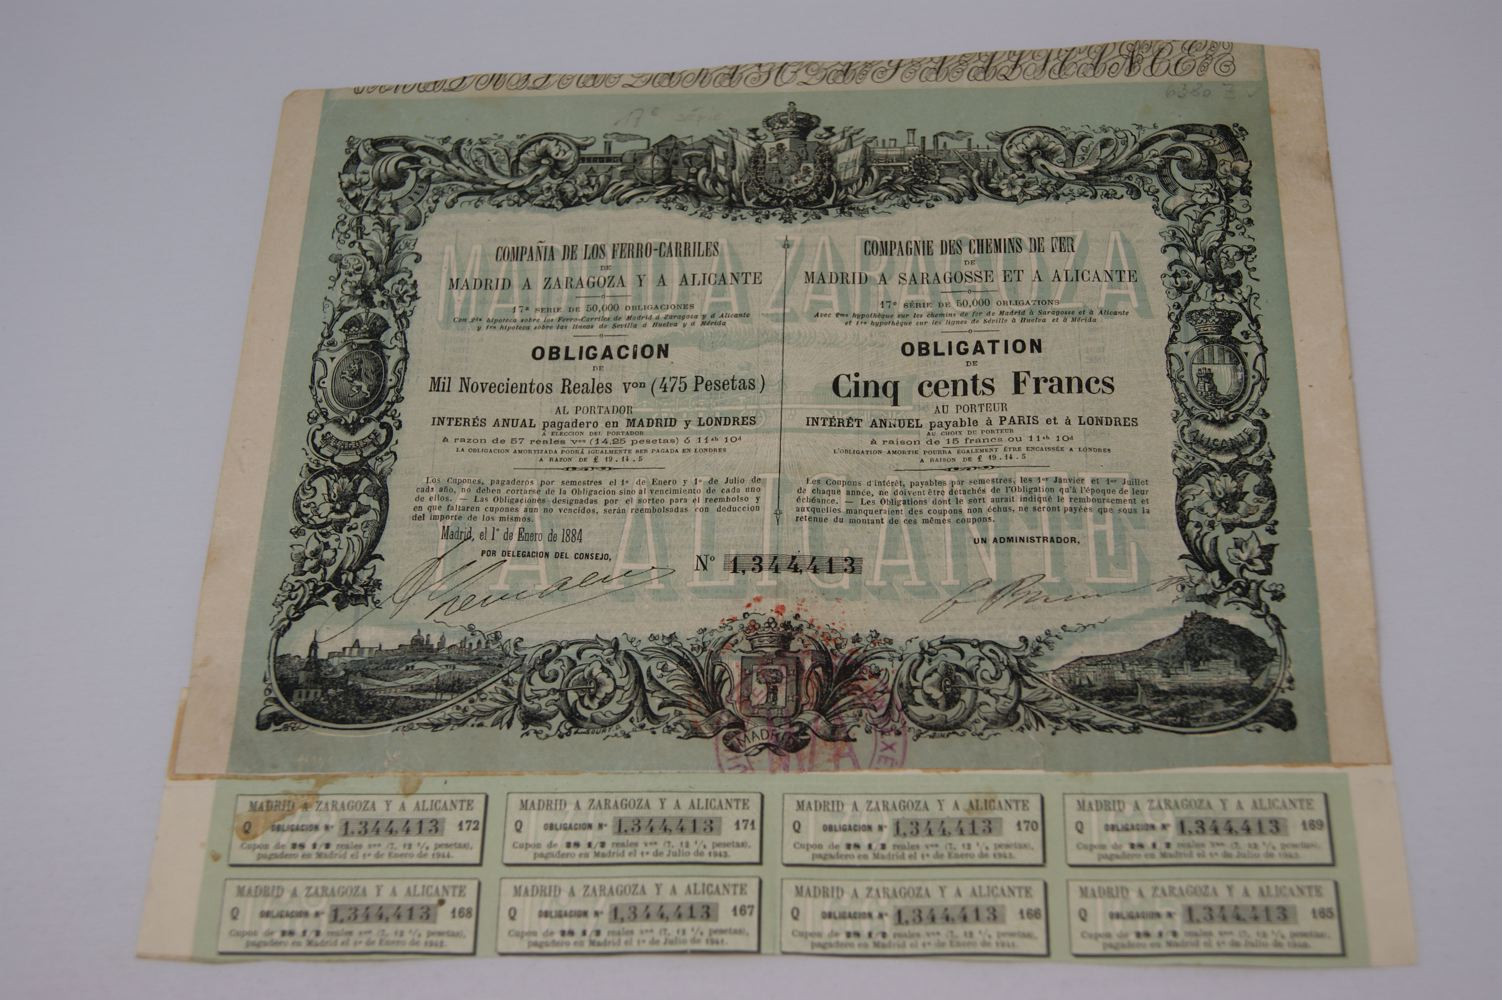 17e série
6380
COMPAÑIA DE LOS FERRO-CARRILES
DE
MADRID A ZARAGOZA Y A ALICANTE
17ª SERIE DE 50,000 OBLIGACIONES
Con 2da hipoteca sobre los Ferro-Carriles de Madrid á Zaragoza y á Alicante
y 1ra hipoteca sobre las lineas de Sevilla á Huelva y á Mérida
OBLIGACION
DE
Mil Novecientos Reales von (475 Pesetas)
AL PORTADOR
INTERÉS ANUAL pagadero en MADRID y LONDRES
A ELECCION DEL PORTADOR
á razon de 57 reales von (14,25 pesetas) ó 11sh 10d
LA OBLIGACION AMORTIZADA PODRÁ IGUALMENTE SER PAGADA EN LONDRES
A RAZON DE £ 19.14.5
Los Cupones, pagaderos por semestres el 1º de Enero y 1º de Julio de
cada año, no deben cortarse de la Obligacion sino al vencimiento de cada uno
de ellos. — Las Obligaciones designadas por el sorteo para el reembolso y
en que faltaren cupones aun no vencidos, serán reembolsadas con deduccion
del importe de los mismos.
Madrid, el 1º de Enero de 1884
POR DELEGACION DEL CONSEJO,
COMPAGNIE DES CHEMINS DE FER
DE
MADRID A SARAGOSSE ET A ALICANTE
17e SÉRIE DE 50,000 OBLIGATIONS
Avec 2me hypothèque sur les chemins de fer de Madrid à Saragosse et à Alicante
et 1re hypothèque sur les lignes de Séville à Huelva et à Mérida
OBLIGATION
DE
Cinq cents Francs
AU PORTEUR
INTÉRÊT ANNUEL payable à PARIS et à LONDRES
AU CHOIX DU PORTEUR
à raison de 15 francs ou 11sh 10d
L'OBLIGATION AMORTIE POURRA ÉGALEMENT ÊTRE ENCAISSÉE A LONDRES
A RAISON DE £ 19.14.5
Les Coupons d'intérêt, payables par semestres, les 1er Janvier et 1er Juillet
de chaque année, ne doivent être détachés de l'Obligation qu'à l'époque de leur
échéance. — Les Obligations dont le sort aurait indiqué le remboursement et
auxquelles manqueraient des coupons non échus, ne seront payées que sous la
retenue du montant de ces mêmes coupons.
UN ADMINISTRATEUR,
Nº 1,344,413
ALICANTE
MADRID
MADRID A ZARAGOZA
Y A ALICANTE
MADRID A ZARAGOZA Y A ALICANTE
Q OBLIGACION Nº 1,344,413 172
Cupon de 28 1/2 reales von (7, 12 1/2 pesetas),
pagadero en Madrid el 1º de Enero de 1944.
MADRID A ZARAGOZA Y A ALICANTE
Q OBLIGACION Nº 1,344,413 171
Cupon de 28 1/2 reales von (7, 12 1/2 pesetas),
pagadero en Madrid el 1º de Julio de 1943.
MADRID A ZARAGOZA Y A ALICANTE
Q OBLIGACION Nº 1,344,413 170
Cupon de 28 1/2 reales von (7, 12 1/2 pesetas),
pagadero en Madrid el 1º de Enero de 1943.
MADRID A ZARAGOZA Y A ALICANTE
Q OBLIGACION Nº 1,344,413 169
Cupon de 28 1/2 reales von (7, 12 1/2 pesetas),
pagadero en Madrid el 1º de Julio de 1942.
MADRID A ZARAGOZA Y A ALICANTE
Q OBLIGACION Nº 1,344,413 168
Cupon de 28 1/2 reales von (7, 12 1/2 pesetas),
pagadero en Madrid el 1º de Enero de 1942.
MADRID A ZARAGOZA Y A ALICANTE
Q OBLIGACION Nº 1,344,413 167
Cupon de 28 1/2 reales von (7, 12 1/2 pesetas),
pagadero en Madrid el 1º de Julio de 1941.
MADRID A ZARAGOZA Y A ALICANTE
Q OBLIGACION Nº 1,344,413 166
Cupon de 28 1/2 reales von (7, 12 1/2 pesetas),
pagadero en Madrid el 1º de Enero de 1941.
MADRID A ZARAGOZA Y A ALICANTE
Q OBLIGACION Nº 1,344,413 165
Cupon de 28 1/2 reales von (7, 12 1/2 pesetas),
pagadero en Madrid el 1º de Julio de 1940.